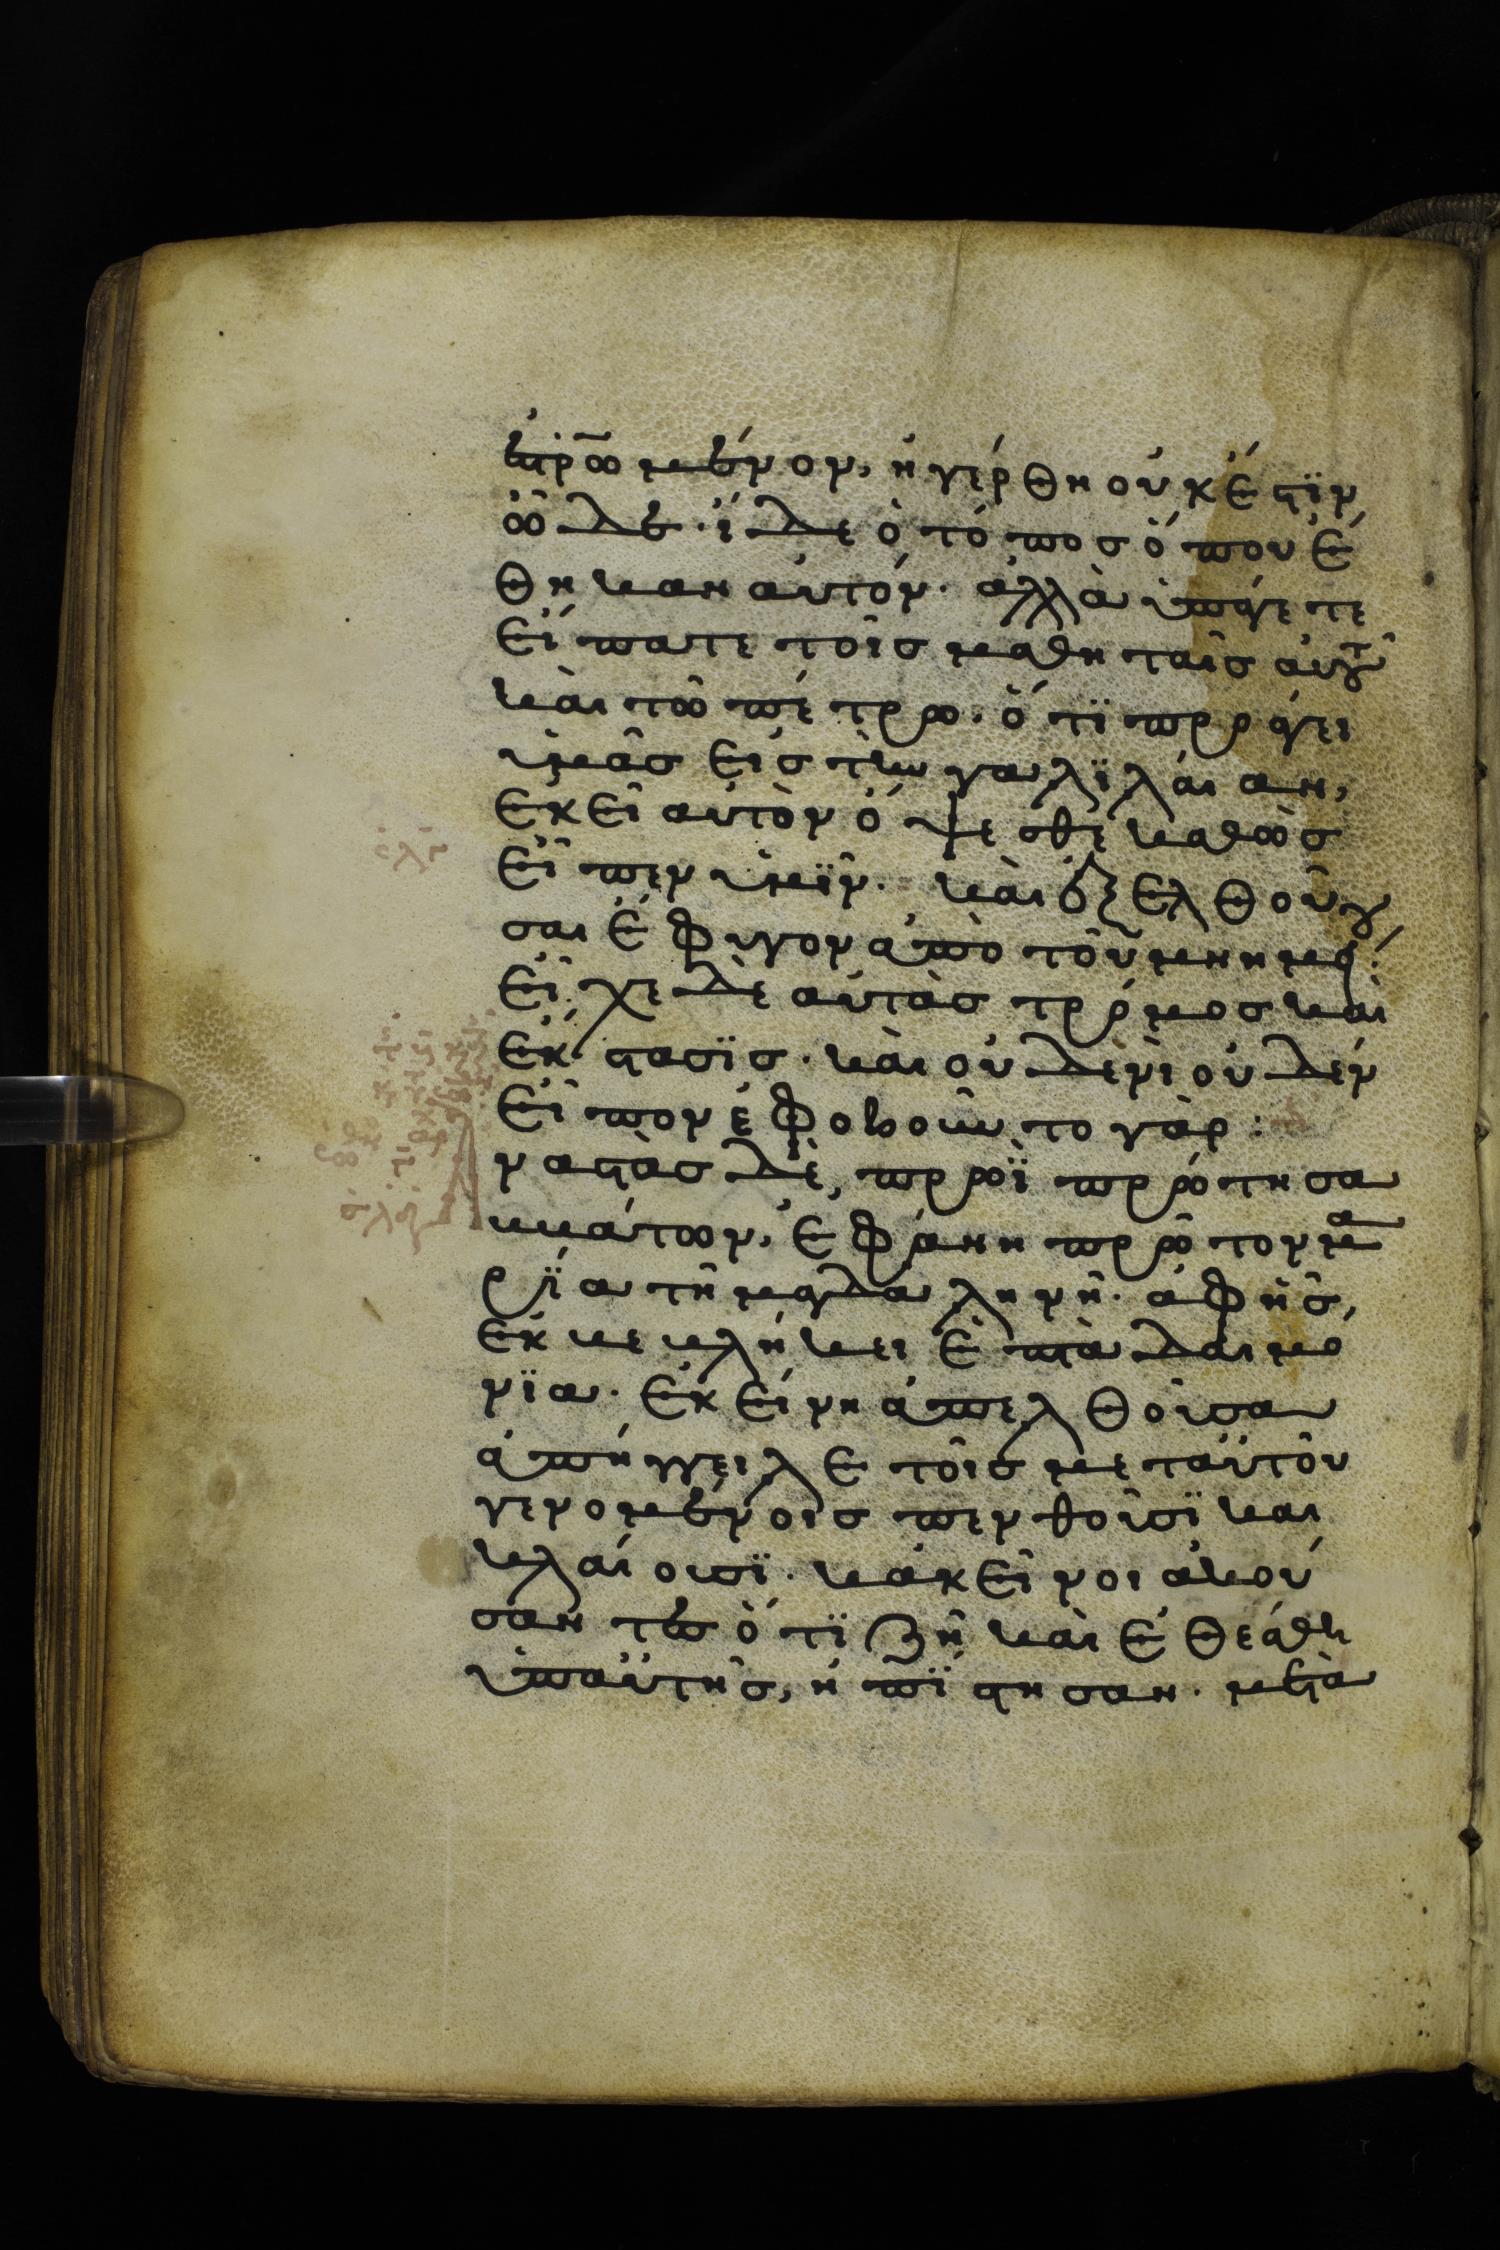 ἐσταυρωμένον, ἠγέρθη οὐκ ἔστϊν
ὧδε· ἴδε ὁ τόπος ὅπου ἔ
θηκαν αὐτόν· ἀλλὰ ὑπάγετε
εἴπατε τοῖς μαθηταῖς αὐτοῦ
καὶ τῶ πέτρω· ὅτϊ προάγει
ὑμᾶς εἰς τὴν γαλϊλαίαν,
ἐκεῖ αὐτὸν ὄψεσθε καθὼς
εἶπεν ὑμῖν· καὶ ἐξελθοῦ
σαι ἔφυγον ἀπὸ τοῦ μνημεί
εἶχε δὲ αὐτὰς τρόμος καὶ
ἔκστασϊς· καὶ οὐδενὶ οὐδὲν
εἶπον ἐφοβοῦντο γάρ:
ναστὰς δὲ, πρωῒ πρώτη σα
κκάτων, ἐφάνη πρῶτον μα
ρΐα τῆ μαγδαληνῆ· ἀφ' ἧς,
ἐκκεκλήκει ἑπτὰ δαιμό
νϊα· ἐκείνη ἀπελθοῦσα
ἀπήγγειλε τοῖς μετ αὐτοῦ
γενομένοις πενθοῦσϊ και
κλαίουσϊ· κἀκεῖνοι ἀκού
σαντες ὅτϊ ζῆ καὶ ἐθεάθη
ὑπ αὐτῆς, ἠπΐστησαν· μετὰ